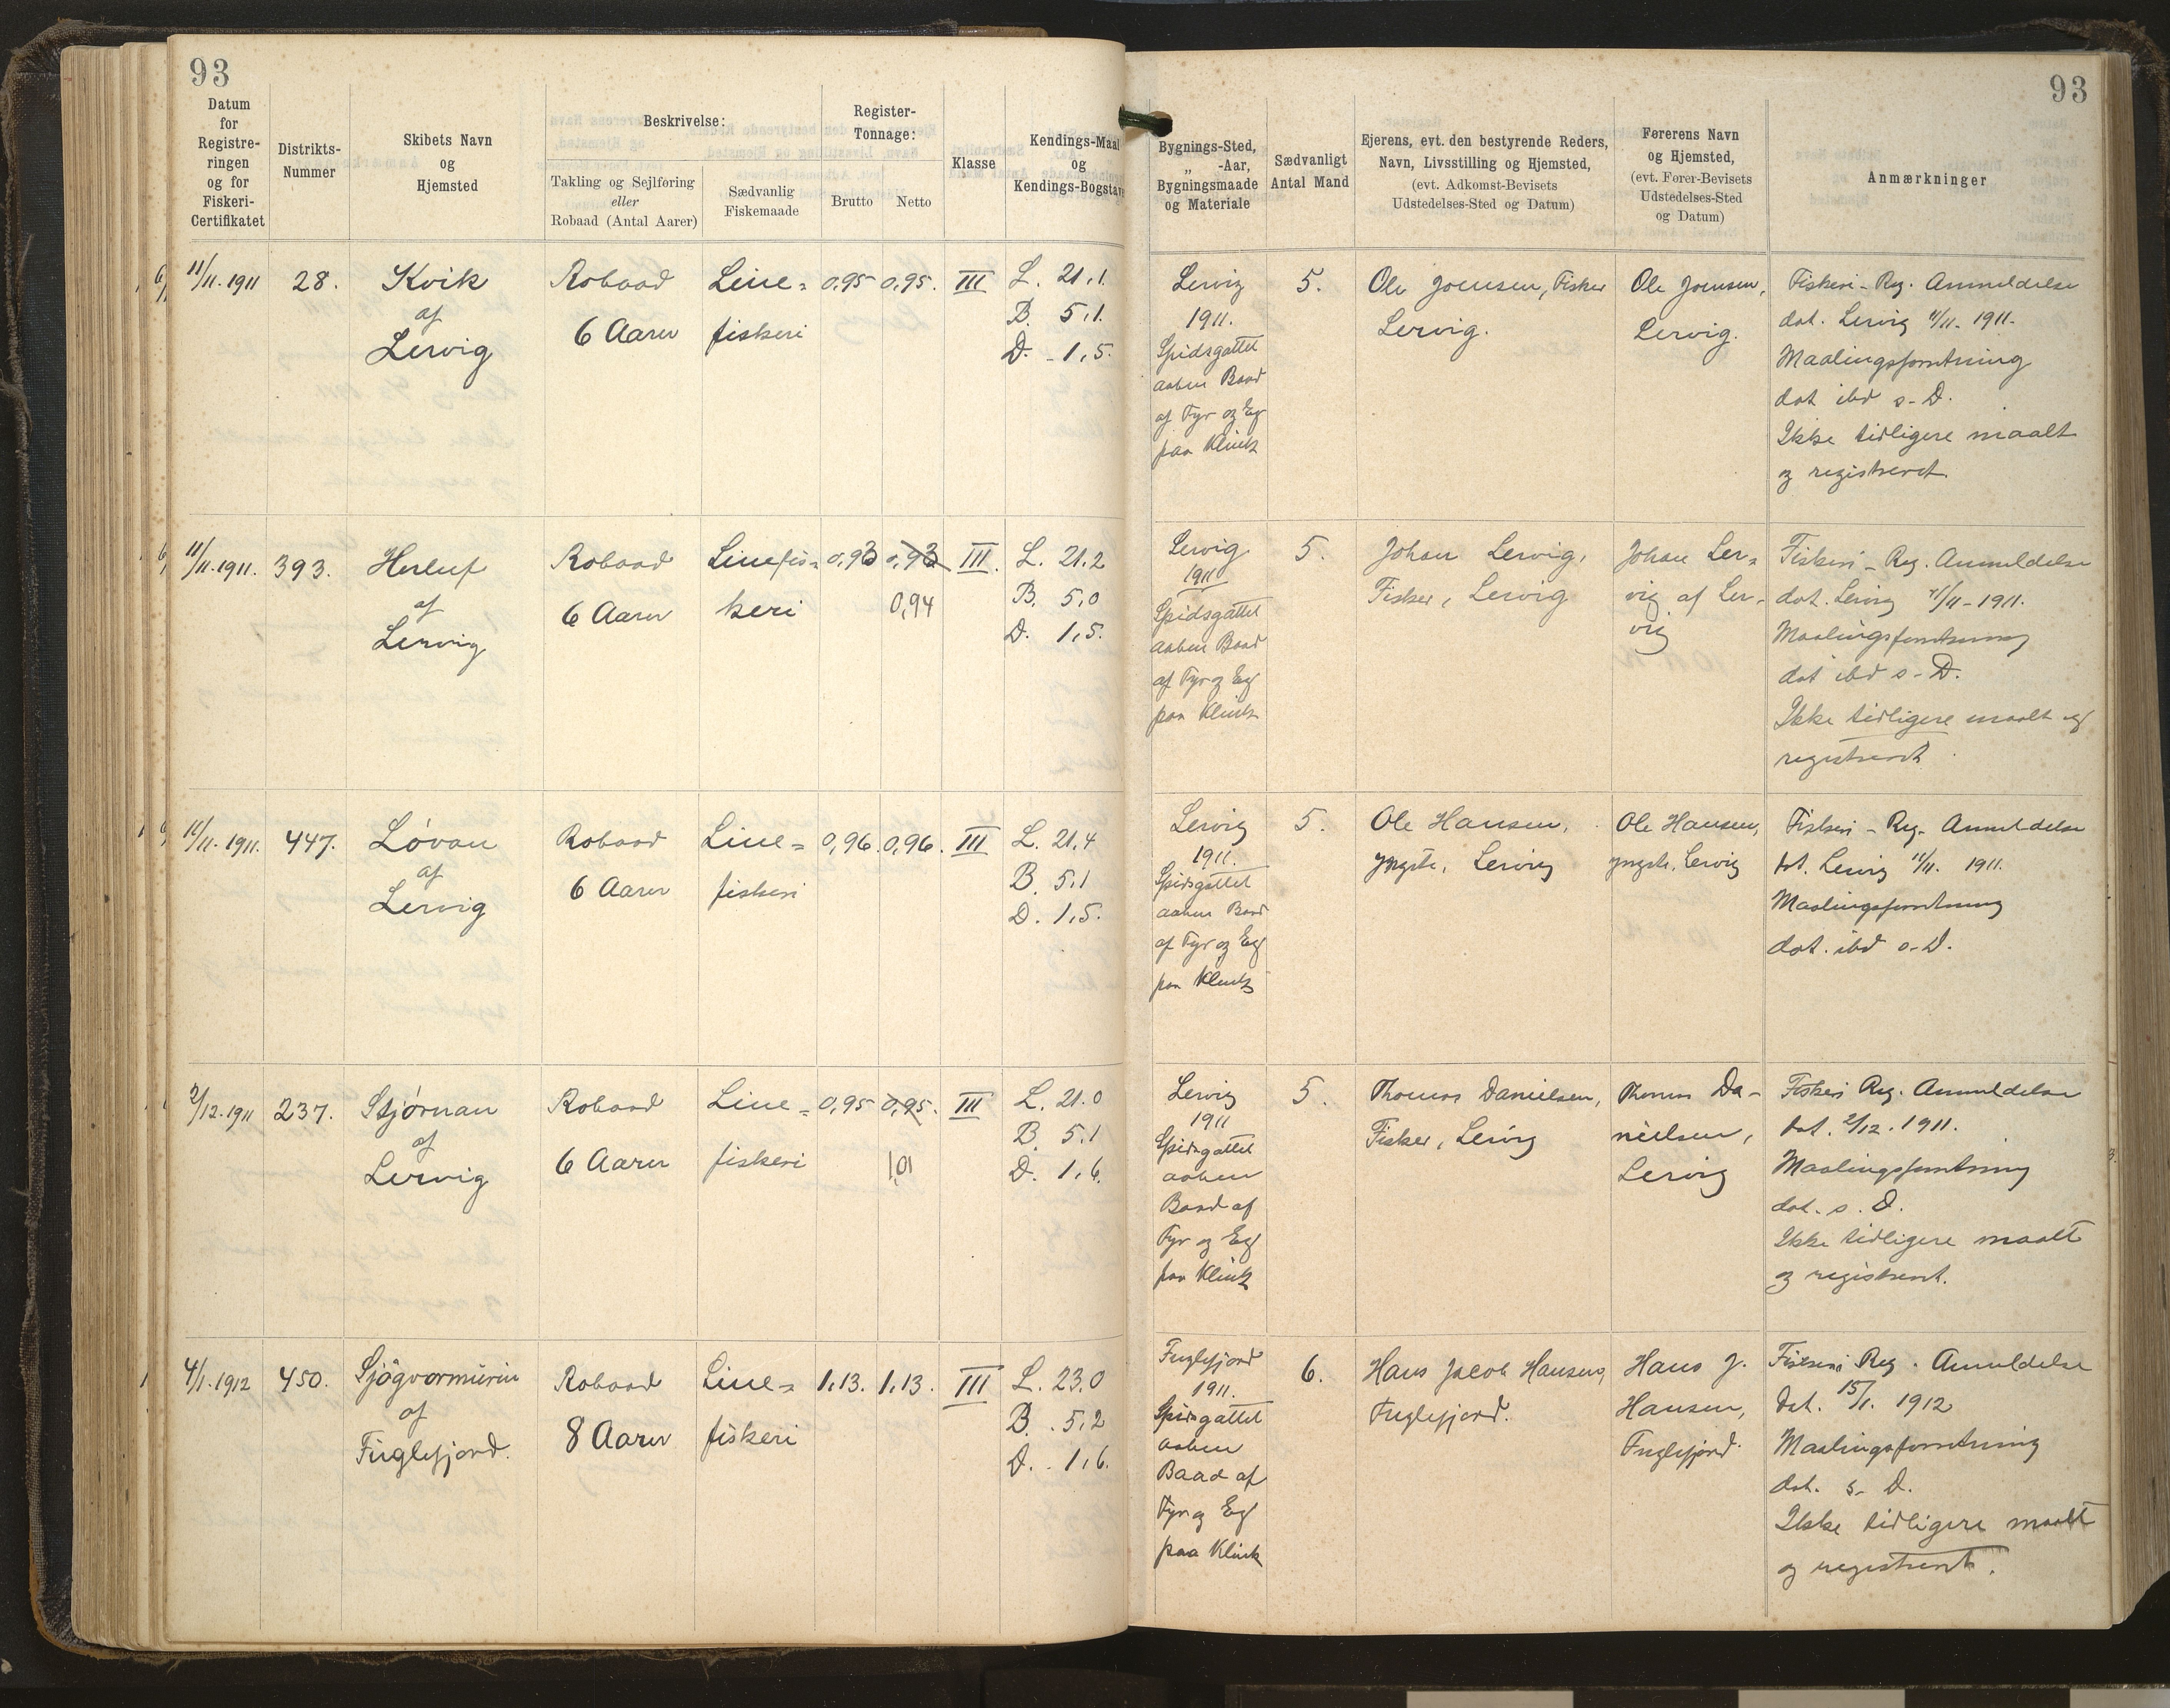 93
93
Datum for Registreringen og for Fiskeri-Certifikatet
Distrikts-Nummer
Skibets Navn og Hjemsted
Beskrivelse:
Takling og Sejlføring eller Robaad (Antal Aarer)
Sædvanlig Fiskemaade
Register-Tonnage:
Brutto
Netto
Klasse
Kendings-Maal og Kendings-Bogstav
Bygnings-Sted, „ -Aar, Bygningsmaade og Materiale
Sædvanligt Antal Mand
Ejerens, evt. den bestyrende Reders, Navn, Livsstilling og Hjemsted, (evt. Adkomst-Bevisets Udstedelses-Sted og Datum)
Førerens Navn og Hjemsted, (evt. Fører-Bevisets Udstedelses-Sted og Datum)
Anmærkninger
11/11. 1911
28.
Kvik
af
Lervig
Robaad
6 Aarer
Line=
fiskeri
0,95
0,95.
III
L. 21,1.
B. 5,1.
D. 1,5.
Lervig
1911.
Spidsgattet
aaben Baad
af Fyr og Eg
paa Klink
5.
Ole Joensen, Fisker
Lervig.
Ole Joensen,
Lervig.
Fiskeri-Reg. Anmeldelse
dat. Lervig 11/11. 1911.
Maalingsforretning
dat ibd s. D.
Ikke tidligere maalt
og registreret.
11/11. 1911.
393.
Herluf
af
Lervig
Robaad
6 Aarer
Linefis=
keri
0,93
0,93
0,94
III.
L. 21.2
B. 5,0
D. 1,5.
Lervig
1911
Spidsgattet
aaben Baad
af Fyr og Eg
paa Klink
5.
Johan Lervig,
Fisker, Lervig
Johan Ler=
vig af Ler-
vig
Fiskeri-Reg. Anmeldelse
dat. Lervig 11/11-1911.
Maalingsforretning
dat ibd s. D.
Ikke tidligere maalt og
registreret
11/11. 1911.
447.
Lóvan
af
Lervig
Robaad
6 Aarer
Line=
fiskeri
0,96.
0,96.
III
L. 21,4
B. 5,1
D. 1,5.
Lervig
1911.
Spidsgattet
aaben Baad
af Fyr og Eg
paa Klink
5.
Ole Hansen,
yngste, Lervig
Ole Hansen,
yngste, Lervig
Fiskeri-Reg. Anmeldelse
dat. Lervig 11/11. 1911.
Maalingsforretning
dat. ibd s. D.
2/12. 1911
237.
Stjórnan
af
Lervig
Robaad
6 Aarer
Line=
fiskeri
0,95
0,95.
1,01
III
L. 21.0
B. 5.1
D. 1,6.
Lervig
1911
Spidsgattet
aaben
Baad af
Fyr og Eg
paa Klink
5.
Thomas Danielsen,
Fisker, Lervig
Thomas Da-
nielsen,
Lervig
Fiskeri Reg. Anmeldelse
dat. 2/12. 1911.
Maalingsforretning
dat. s. D.
Ikke tidligere maalt
og registreret.
4/1. 1912
450.
Sjógvarmúrin
af
Fuglefjord.
Robaad
8 Aarer
Line=
fiskeri
1,13.
1,13.
III
L. 23,0
B. 5,2
D. 1,6.
Fuglefjord
1911.
Spidsgattet
aaben
Baad af
Fyr og Eg
paa Klink
6.
Hans Jacob Hansen,
Fuglefjord.
Hans J.
Hansen,
Fuglefjord.
Fiskeri Reg. Anmeldelse
dat. 15/1. 1912
Maalingsforretning
dat. s. D.
Ikke tidligere maalt
og registreret.